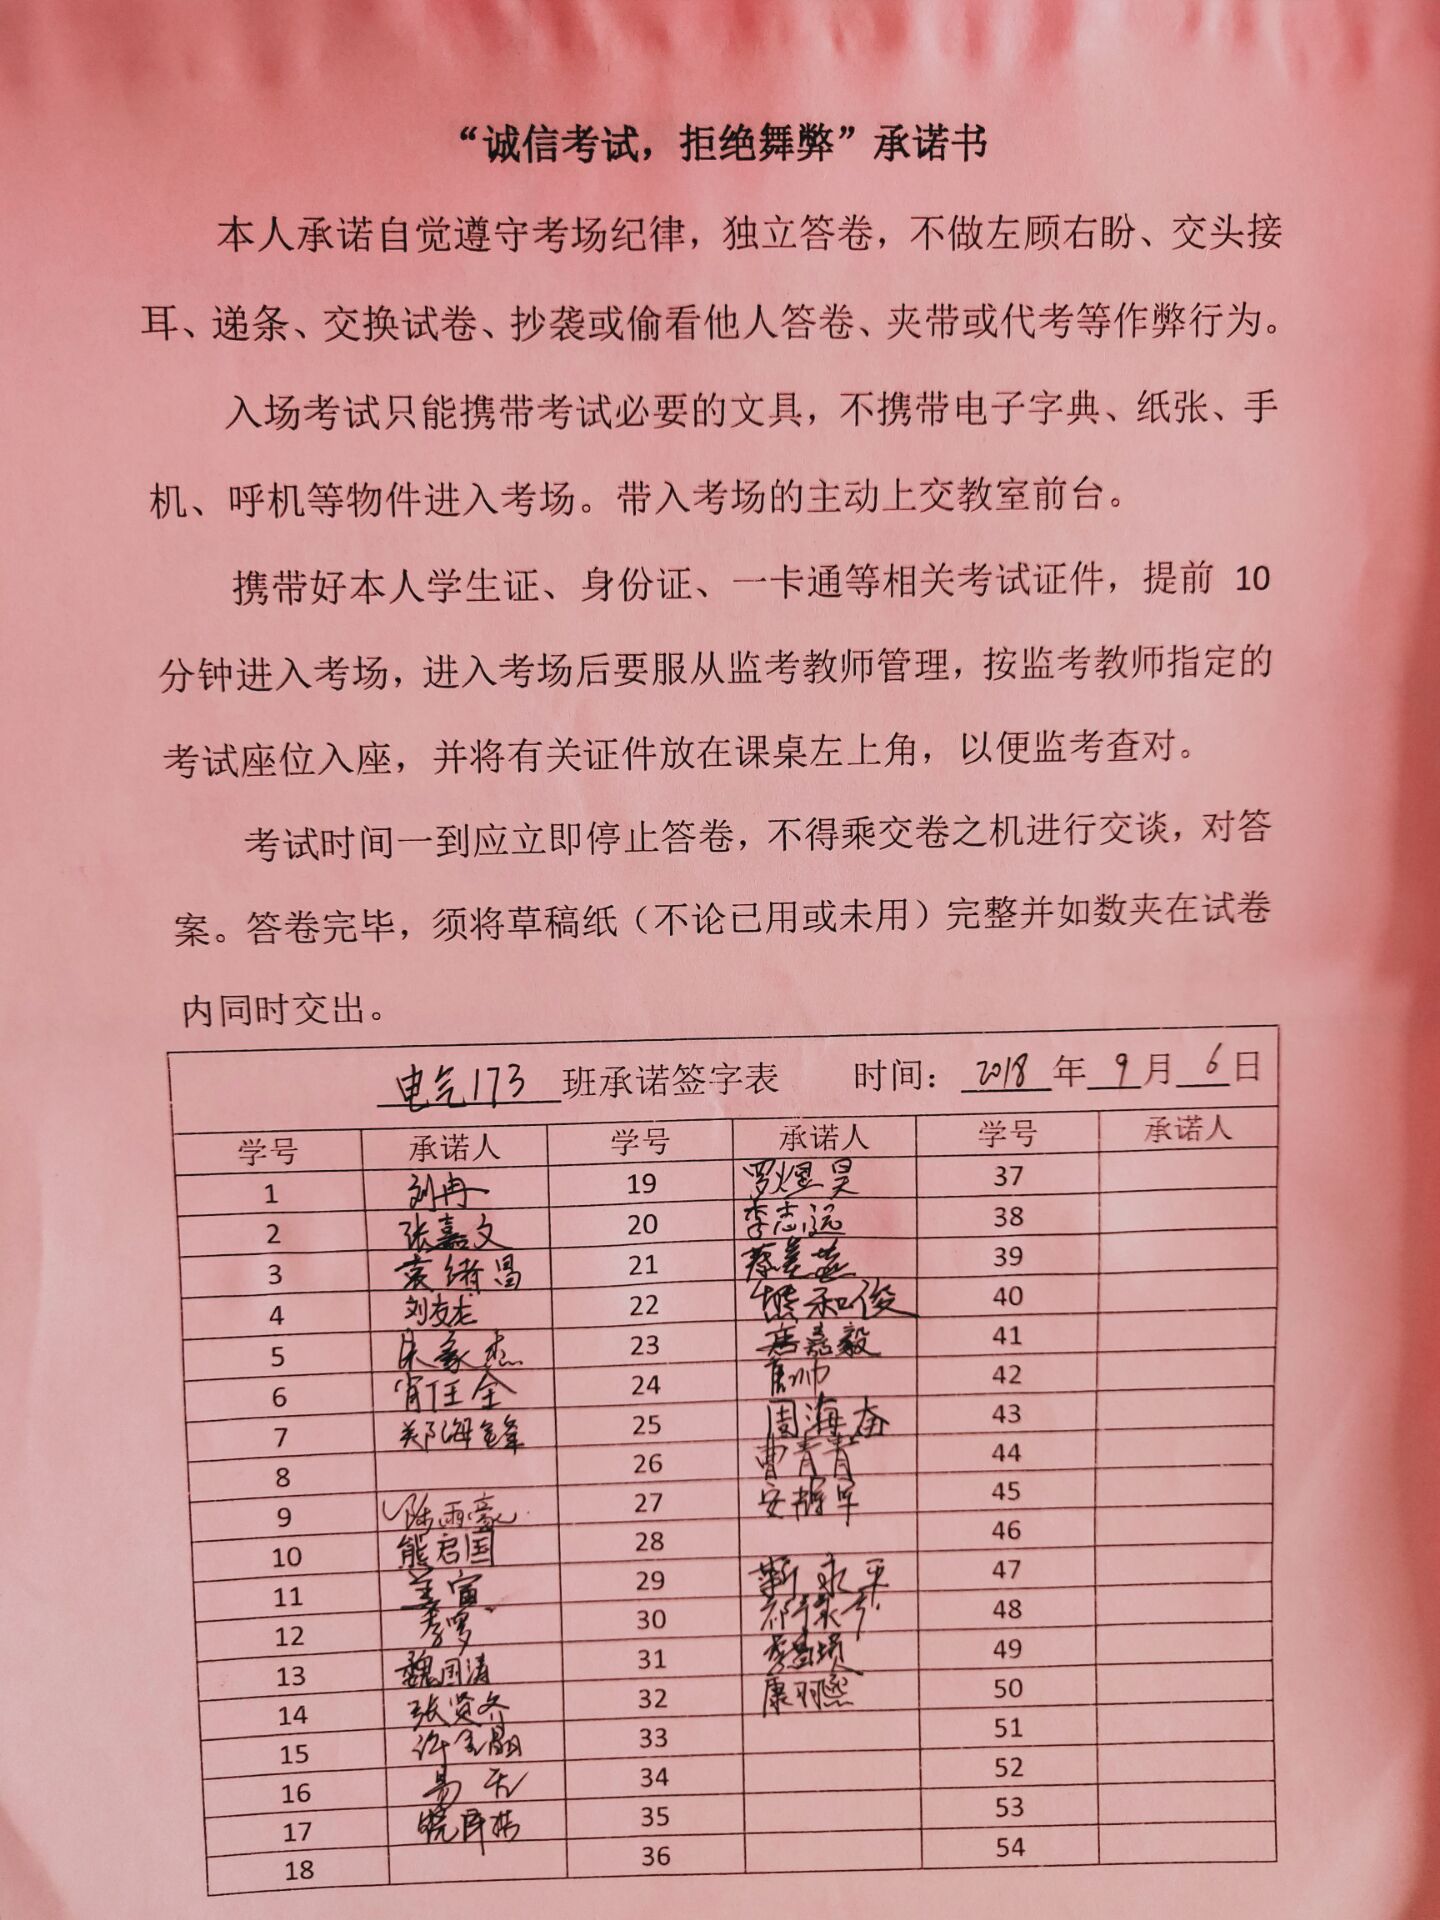 “诚信考试，拒绝舞弊”承诺书
本人承诺自觉遵守考场纪律，独立答卷，不做左顾右盼、交头接
耳、递条、交换试卷、抄袭或偷看他人答卷、夹带或代考等作弊行为。
入场考试只能携带考试必要的文具，不携带电子字典、纸张、手
机、呼机等物件进入考场。带入考场的主动上交教室前台。
携带好本人学生证、身份证、一卡通等相关考试证件，提前 10
分钟进入考场，进入考场后要服从监考教师管理，按监考教师指定的
考试座位入座，并将有关证件放在课桌左上角，以便监考查对。
考试时间一到应立即停止答卷，不得乘交卷之机进行交谈，对答
案。答卷完毕，须将草稿纸（不论已用或未用）完整并如数夹在试卷
内同时交出。
电气173 班承诺签字表 时间：2018 年 9 月 6 日
学号 承诺人 学号 承诺人 学号 承诺人
1 刘冉 19 罗煜昊 37
2 张嘉文 20 李志远 38
3 袁绪昌 21 39
4 刘友龙 22 熊和俊 40
5 宋家杰 23 唐嘉毅 41
6 肖任全 24 42
7 郑海锋 25 周海奋 43
8 26 曹青青 44
9 陆雨豪 27 45
10 熊启国 28 46
11 姜寅 29 靳永平 47
12 李罗 30 48
13 魏国清 31 49
14 张贤齐 32 康羽熙 50
15 33 51
16 易天 34 52
17 35 53
18 36 54